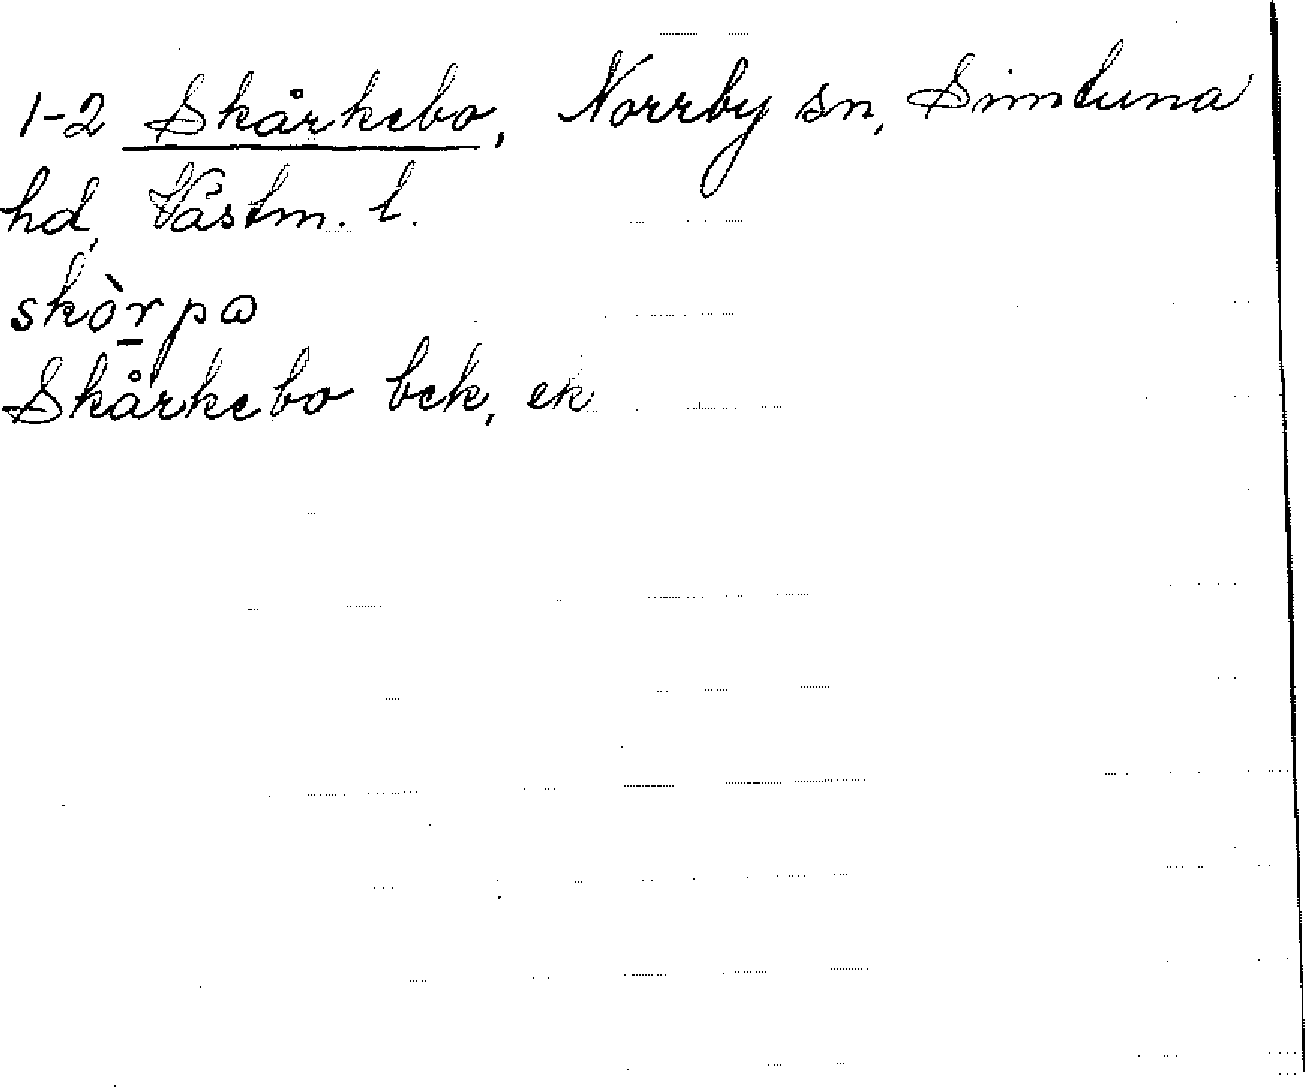 1-2 Skårkebo, Norrby sn, Simtuna
hd, Västm. l.
skòrpɷ
Skårkebo bek, ek